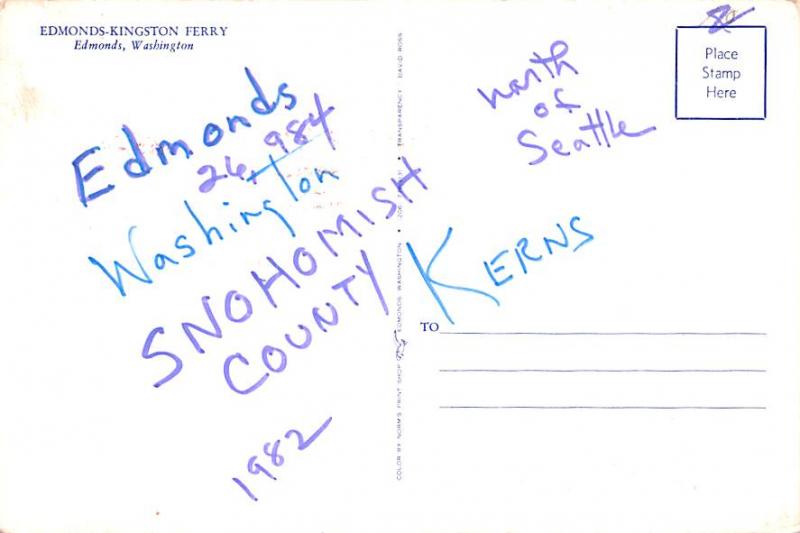 EDMONDS-KINGSTON FERRY
Edmonds, Washington
Edmonds
26,984
Washington
SNOHOMISH
COUNTY
1982
COLOR BY NORM'S PRINT SHOP
EDMONDS, WASHINGTON
TRANSPARENCY DAVID ROSS
north
of
Seattle
KERNS
Place
Stamp
Here
TO